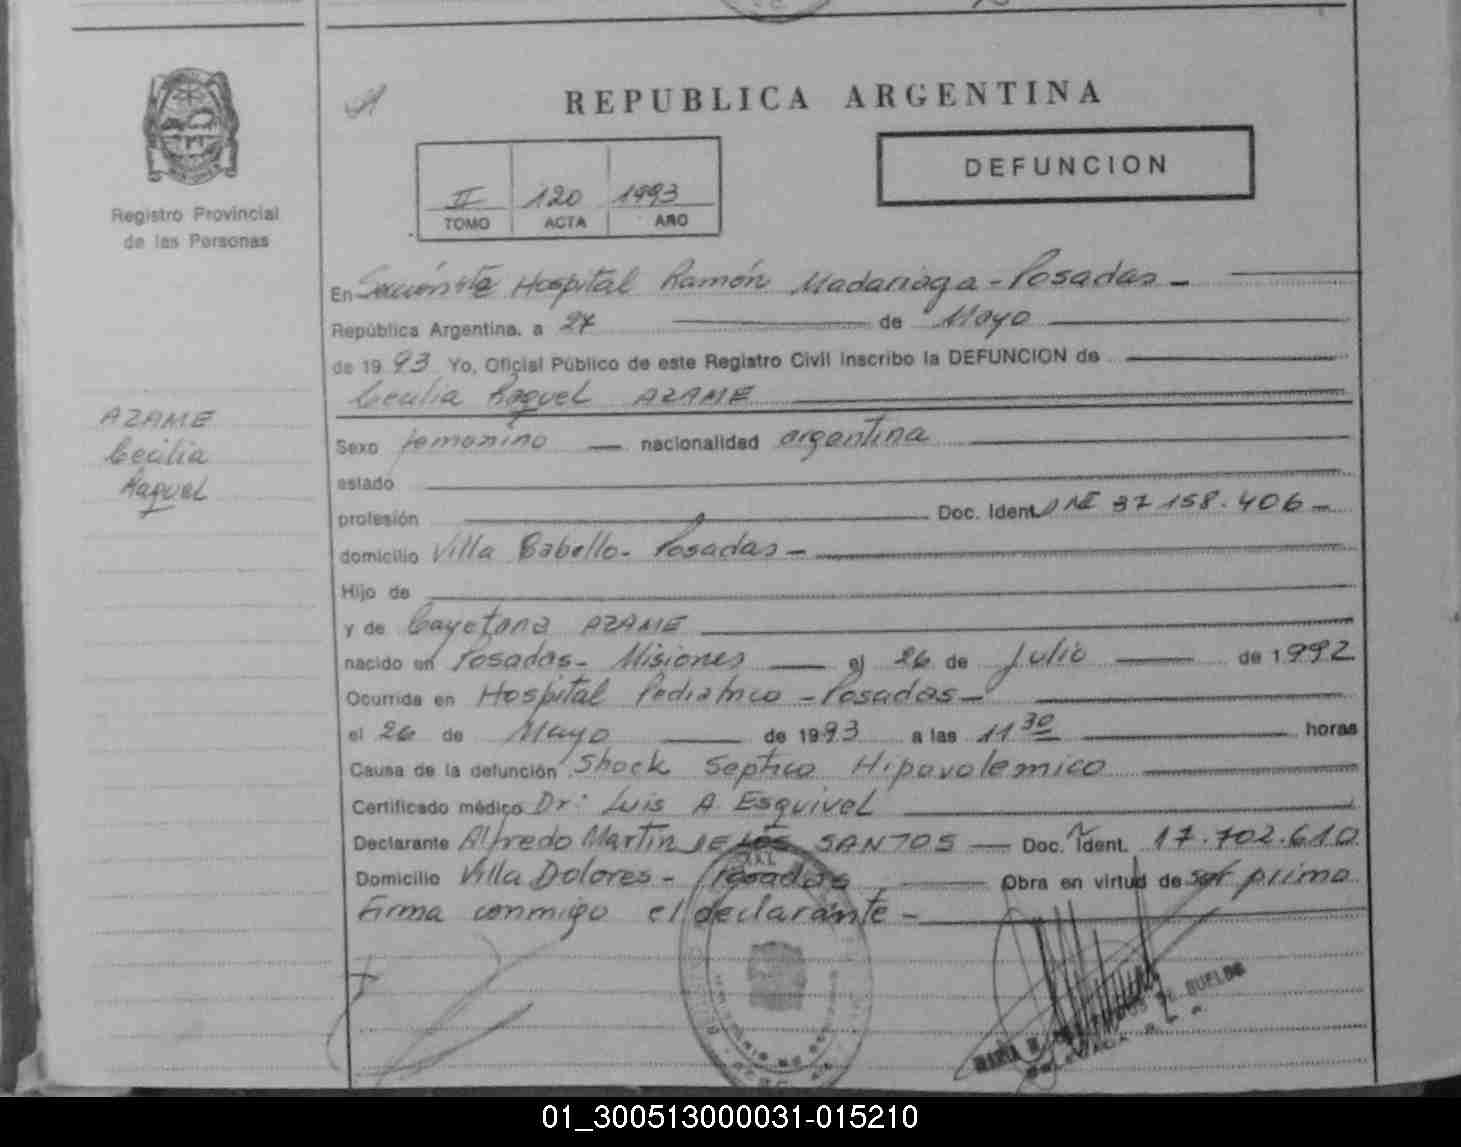 REPUBLICA ARGENTINA
DEFUNCION
II 120 1993
TOMO ACTA AÑO
Registro Provincial
de las Personas
En Hospital Ramón Madariaga - Posadas -
República Argentina, a 27 de Mayo
de 1993 Yo, Oficial Público de este Registro Civil inscribo la DEFUNCION de
Cecilia Raquel AZAME
AZAME
Cecilia
Raquel
Sexo femenino nacionalidad argentina
estado
profesión Doc. Ident. 37 158.406
domicilio Villa Cabello - Posadas -
Hijo de
y de Cayetana AZAME
nacido en Posadas - Misiones el 26 de Julio de 1992
Ocurrida en Hospital Pediatrico - Posadas -
el 26 de Mayo de 1993 a las 11 30 horas
Causa de la defunción Shock Septico Hipovolemico
Certificado médico Dr: Luis A. Esquivel
Declarante Alfredo Martín DE LOS SANTOS Doc. Ident. 17.702.610
Domicilio Villa Dolores - Posadas Obra en virtud de ser primo
Firma conmigo el declarante -
01_300513000031-015210